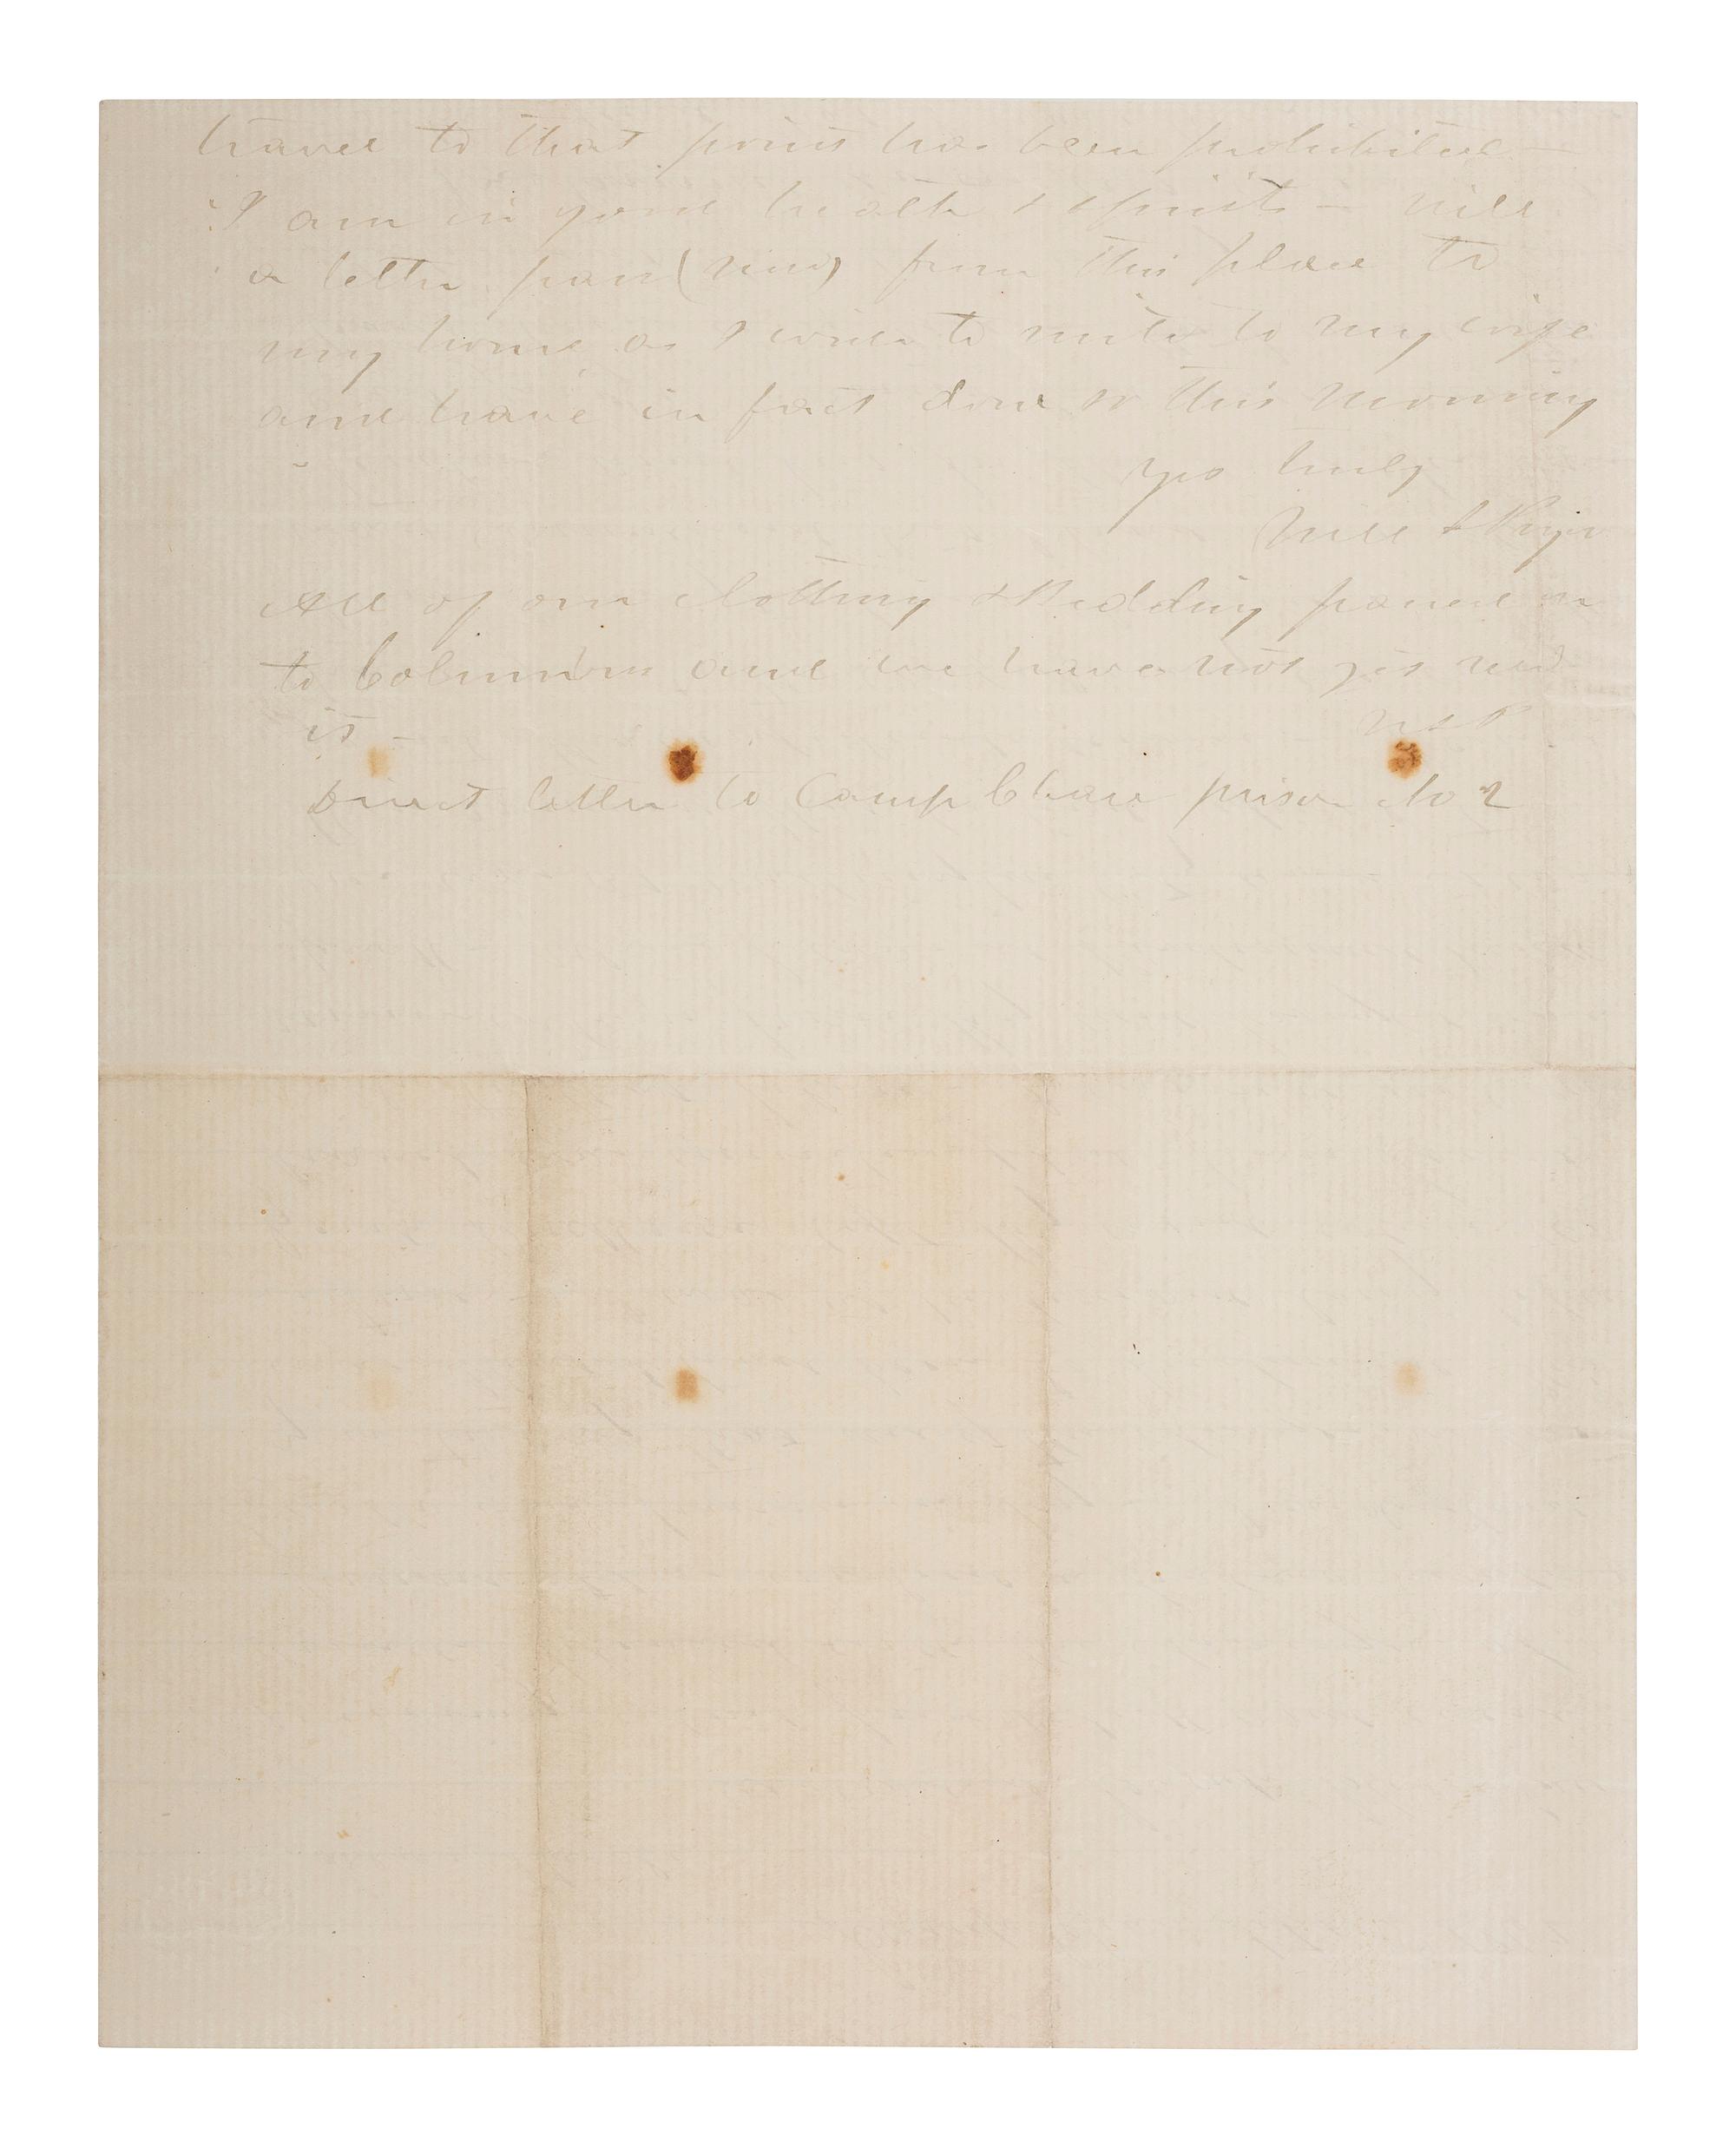 travel to that point has been prohibited —
I am in good health & spirits — will
a letter pass (now) from this place to
my home as I wish to write to my wife
and have in fact done so this morning
yrs truly
Will S Pryor
All of our clothing & Bedding passed on
to Columbus and we have not yet recd
it —
W S P
Direct letter to Camp Chase prison No 2